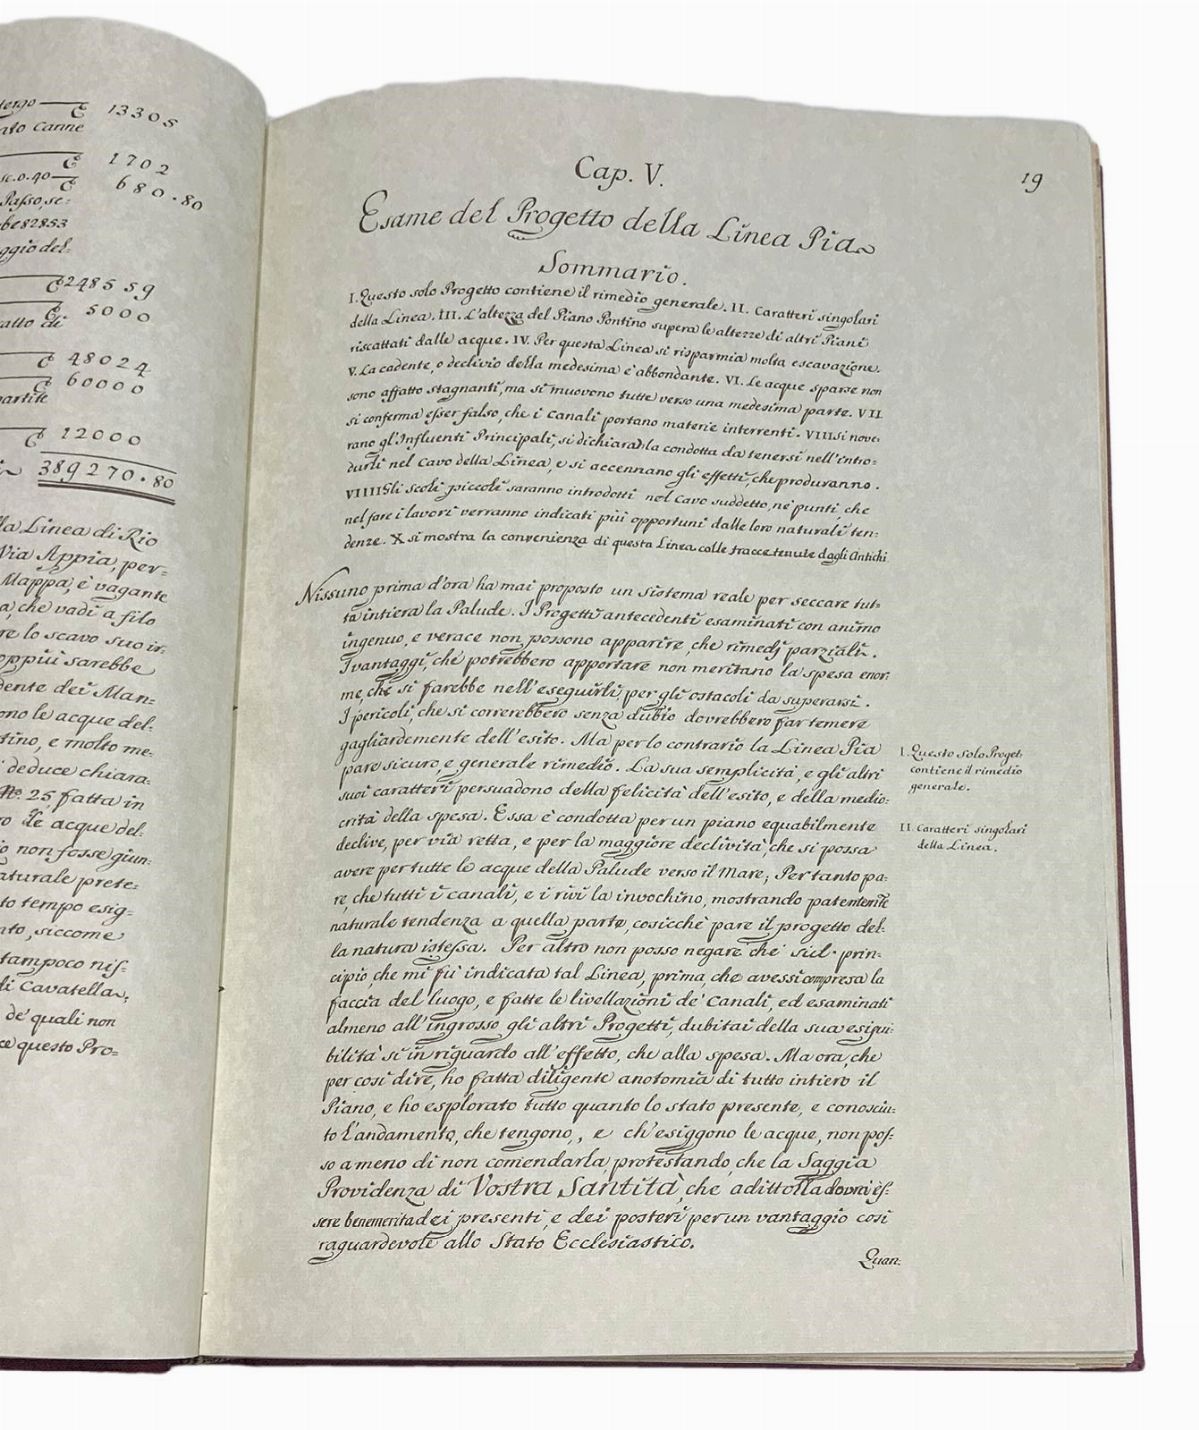 tergo — 13305
nto Canne
1702
sc. 0.40 — 680.80
Passo, sc:
be 82853
ggio del:
248559
5000
atto di
48024
60000
partite
12000
389270.80
la Linea di Rio
Via Appia, per=
Mappa, è vagante
a, che vadi a filo
re lo scavo suo ir:
oppiù sarebbe
dente dei Man=
ono le acque del:
tino, e molto me:
i deduce chiara:
Nº. 25, fatta in
ro le acque del:
io non fosse giun:
aturale prete:
to tempo esig=
nto, siccome
tampoco nis=
di Cavatella,
de' quali non
ce questo Pro=
19
Cap. V.
Esame del Progetto della Linea Pia
Sommario.
I. Questo solo Progetto contiene il rimedio generale. II. Caratteri singolari
della Linea. III. L'altezza del Piano Pontino supera le altezze di altri Piani
riscattati dalle acque. IV. Per questa Linea si risparmia molta escavazione.
V. La cadente, o declivio della medesima è abbondante. VI. Le acque sparse non
sono affatto stagnanti, ma si muovono tutte verso una medesima parte. VII
si conferma esser falso, che i Canali portano materie interrenti. VIII Si nove:
rano gl'Influenti Principali, si dichiara la condotta da tenersi nell'intro=
durli nel Cavo della Linea, e si accennano gli effetti, che produranno.
VIIII Gli scoli piccoli saranno introdotti nel Cavo suddetto, ne' punti che
nel fare i lavori verranno indicati più opportuni dalle loro naturali ten=
denze. X si mostra la convenienza di questa Linea colle tracce tenute dagli Antichi
Nissuno prima d'ora ha mai proposto un sistema reale per seccare tut=
ta intiera la Palude. I Progetti antecedenti esaminati con animo
ingenuo, e verace non possono apparire, che rimedj parziali.
I vantaggi, che potrebbero apportare non meritano la spesa enor:
me, che si farebbe nell'eseguirli, per gli ostacoli da superarsi.
I pericoli, che si correrebbero senza dubio dovrebbero far temere
gagliardemente dell'esito. Ma per lo contrario la Linea Pia
pare sicuro, e generale rimedio. La sua semplicità, e gli altri
suoi caratteri persuadono della felicità dell'esito, e della medio=
crità della spesa. Essa è condotta per un piano equabilmente
declive, per via retta, e per la maggiore declività, che si possa
avere per tutte le acque della Palude verso il Mare; Per tanto pa=
re, che tutti i canali, e i rivi la invochino, mostrando patentemente
naturale tendenza a quella parte, cosicchè pare il progetto del=
la natura istessa. Per altro non posso negare che sul prin=
cipio, che mi fù indicata tal Linea, prima, che avessi compresa la
faccia del luogo, e fatte le livellazioni de' Canali, ed esaminati
almeno all'ingrosso gli altri Progetti, dubitai della sua esigui:
bilità si in riguardo all'effetto, che alla spesa. Ma ora, che
per così dire, ho fatta diligente anotomia di tutto intiero il
Piano, e ho esplorato tutto quanto lo stato presente, e conosciu=
to l'andamento, che tengono,, e ch'esiggono le acque, non pos=
so a meno di non comendarla, protestando, che la Saggia
Providenza di Vostra Santità, che adittolla dovrà es=
sere benemerita dei presenti, e dei posteri per un vantaggio così
raguardevole allo Stato Ecclesiastico.
Quan:
I. Questo solo Proget:
contiene il rimedio
generale.
II. Caratteri singolari
della Linea.